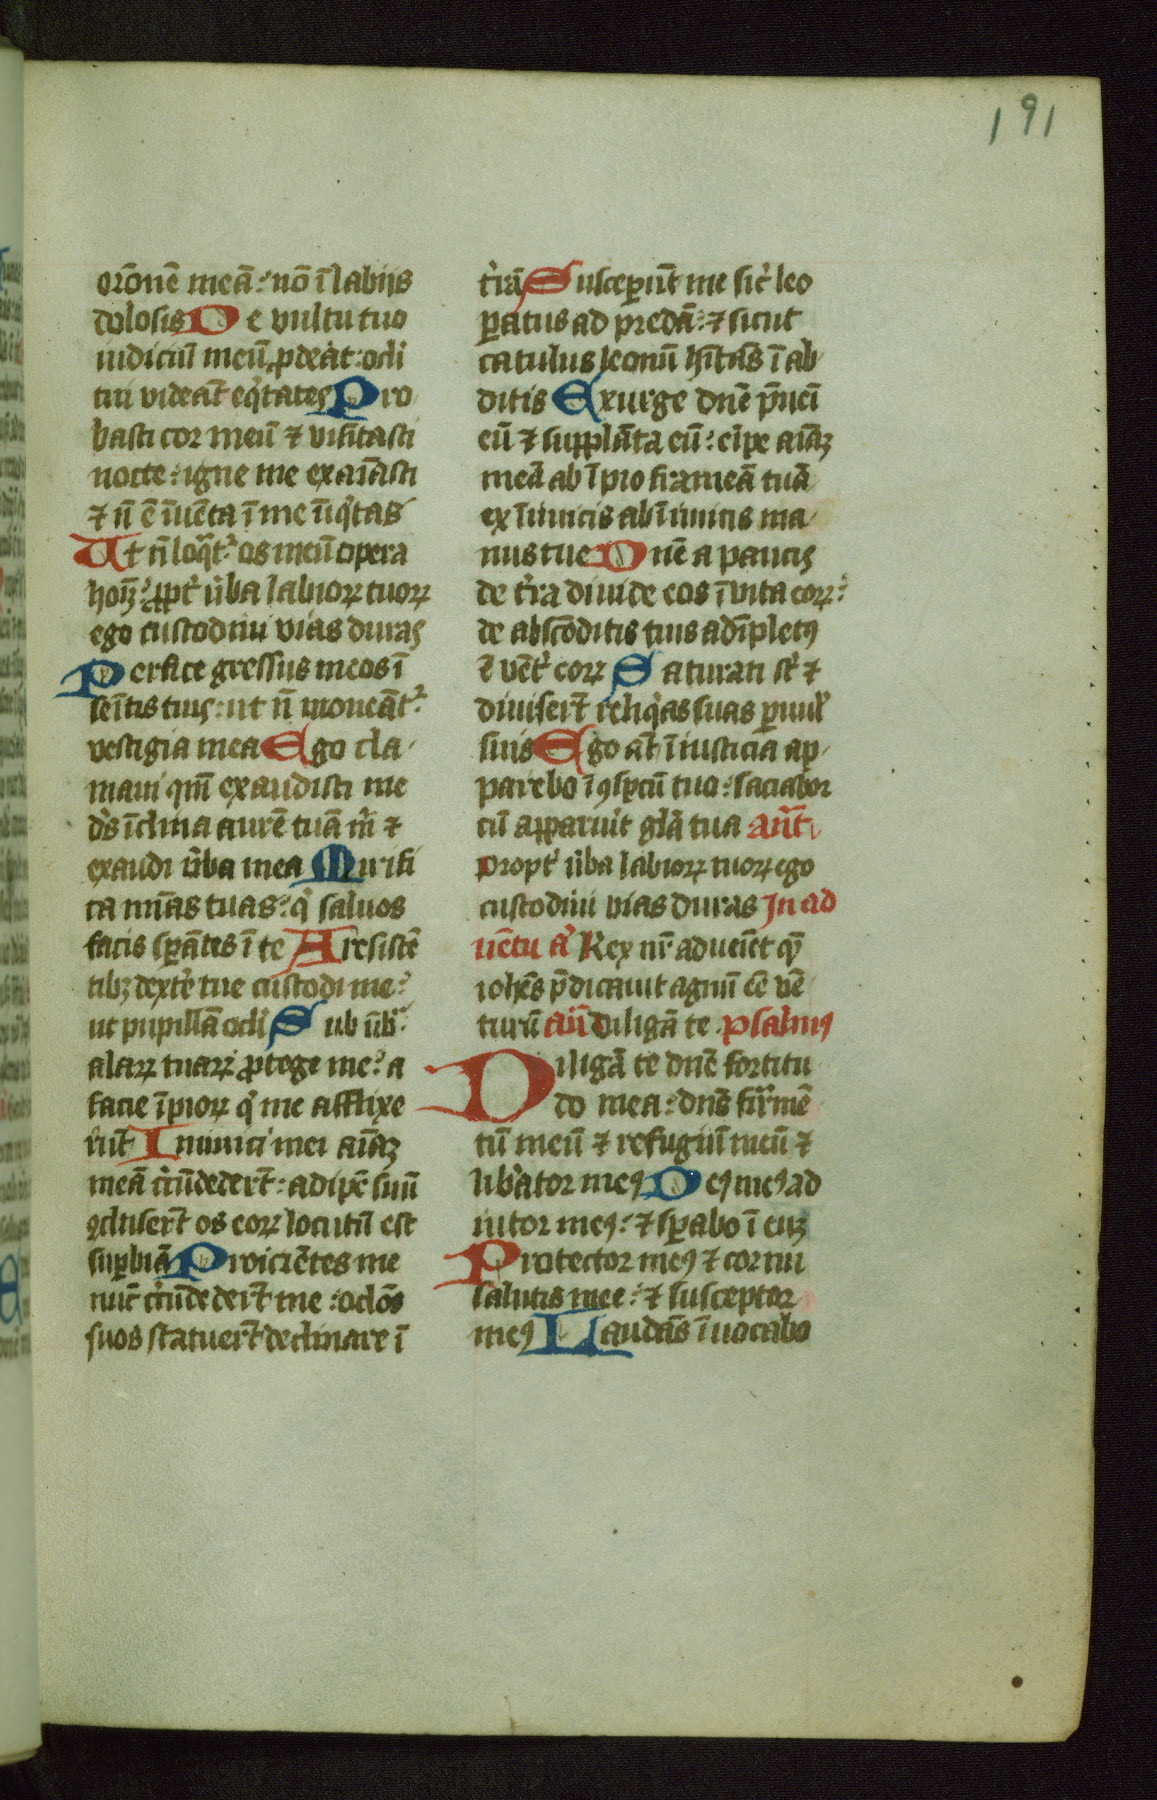 191
or̄onē meā: nō ī labijs
dolosis De vultu tuo
iudiciū meū ꝓdeat: ocli
tui videāt eqͥtates Pro
basti cor meū ⁊ visitasti
nocte: igne me exaīasti
⁊ n̄ ē īuēta ī me īiqͥtas
Ut n̄ loqͣt᷑ os meū opera
hoīꝫ: ꝓpt̕ v̄ba labioꝝ tuoꝝ
ego custodiui vias duras
Perfice gressus meos ī
semitis tuis: ut n̄ moueāt᷑
vestigia mea Ego cla
maui qm̄ exaudisti me
ds̄ īclina aurē tuā m̄ ⁊
exaudi v̄ba mea Mirifi
ca mīas tuas: qͥ saluos
facis sꝑātes ī te A resistē
tibꝫ dext̕e tue custodi me:
ut pupillā ocli Sub ūb̄
alaꝝ tuaꝝ ꝓtege me: a
facie īpioꝝ qͥ me afflixe
rūt Inimici mei aīaꝫ
meā cͥcūdedert̄: adipē suū
ꝯclusert̄ os eoꝝ locutū est
suꝑbiā Proicientes me
nūc cͥcūdedert̄ me: oclōs
suos statuert̄ declinare ī
t̄rā Susceꝑūt me sic̄ leo
ꝑatus ad predā: ⁊ sicut
catulus leonū hītās ī ab
ditis Exurge dn̄e p̄ueī
eū ⁊ supplāta eū: eīpe aīaꝫ
meā ab īpio frameā tuā
ex īimicis ab īimicis ma
nus tue Dn̄e a paucis
de t̄ra diuide eos ī vita eoꝝ:
de abscōditis tuis adīpletꝰ
ē vēt̕ eoꝝ Saturati st̄ ⁊
diuisert̄ reliqͥas suas ꝑuul̕
suis Ego at̄ ī iusticia ap
parebo ī ꝯsꝑctū tuo: saciabor
cū apparuit gl̄a tua an̄t
Propt̕ v̄ba labioꝝ tuoꝝ ego
custodiui vias duras In ad
uētu a᷑ Rex nr̄ adueiet qͣ
ioh̄es p̄dicauit agnū eē vē
turū an̄ Diligā te psalmꝰ
Diligā te dn̄e fortitu
do mea: dn̄s firmē
tū meū ⁊ refugiū meū ⁊
lib̄ator meꝰ Deꝰ meꝰ ad
iutor meꝰ: ⁊ sꝑabo ī euꝫ
Protector meꝰ ⁊ cornu
salutis mee: ⁊ susceptor
meꝰ Laudās īuocabo